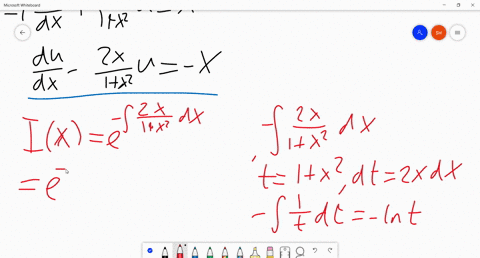 Microsoft Whiteboard
SH
du/dx - 2x/(1+x²) u = -x
I(x) = e^(-∫ 2x/(1+x²) dx)
= e^-
-∫ 2x/(1+x²) dx
t = 1+x², dt = 2x dx
-∫ 1/t dt = -ln t